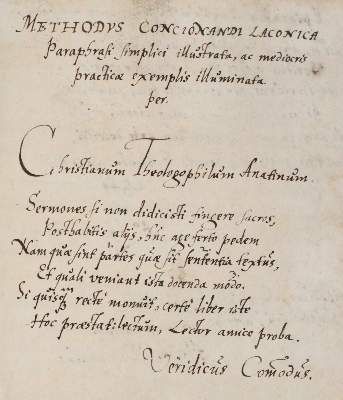 METHODVS CONCIONANDI LACONICA
Paraphrasi simplici illustrata, ac mediocris
practicæ exemplis illuminata
per
Christianum Theologophilum Anatinum.
Sermones si non didicisti fingere sacros,
Posthabitis alijs, huc age ferto pedem
Nam quæ sint partes quæ sit sententia textus,
Et quali veniant ista docenda modo.
Si quisq recte monuit, certe liber iste
Hoc præstat: lectum, Lector amice proba.
Veridicus Comodus.